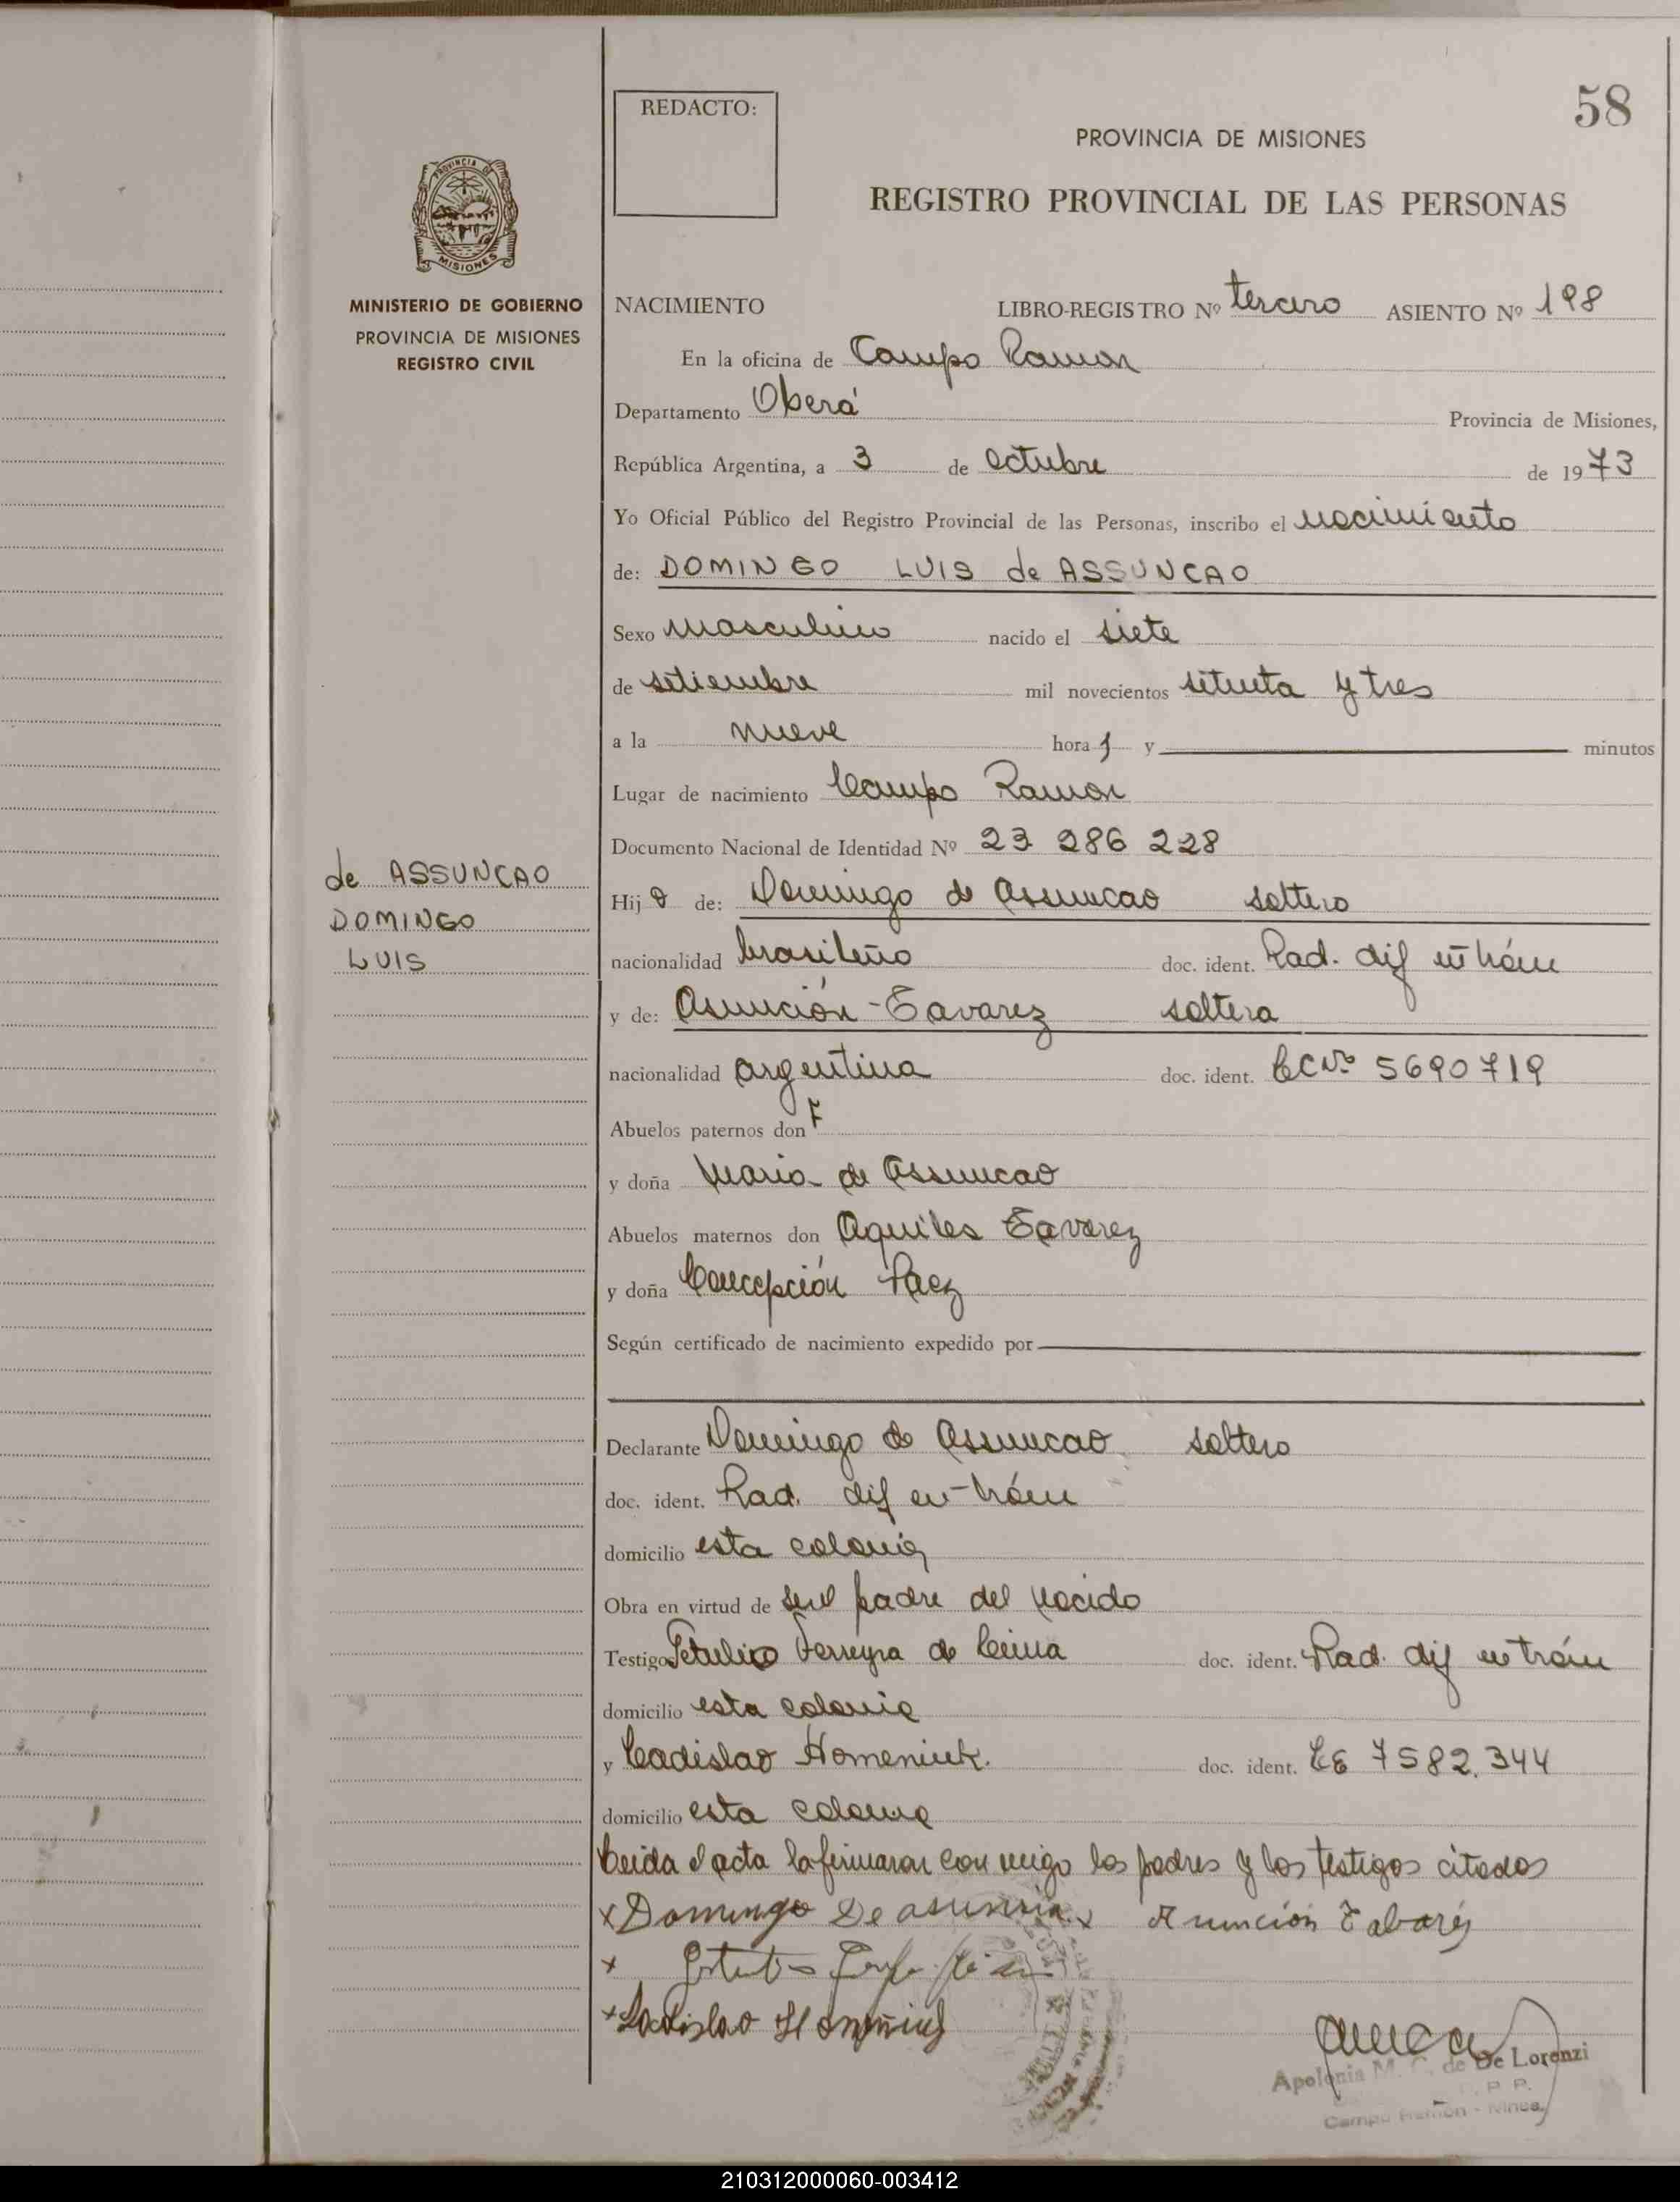 58
REDACTO:
PROVINCIA DE MISIONES
REGISTRO PROVINCIAL DE LAS PERSONAS
PROVINCIA DE
MISIONES
MINISTERIO DE GOBIERNO
PROVINCIA DE MISIONES
REGISTRO CIVIL
NACIMIENTO LIBRO-REGISTRO Nº tercero ASIENTO Nº 198
En la oficina de Campo Ramon
Departamento Oberá Provincia de Misiones,
República Argentina, a 3 de octubre de 1973
Yo Oficial Público del Registro Provincial de las Personas, inscribo el nacimiento
de: DOMINGO LUIS de ASSUNCAO
Sexo masculino nacido el siete
de setiembre mil novecientos setenta y tres
a la nueve hora s y minutos
Lugar de nacimiento Campo Ramon
Documento Nacional de Identidad Nº 23 286 228
de ASSUNCAO
DOMINGO
LUIS
Hij o de: Domingo de Assuncao soltero
nacionalidad brasileño doc. ident. Rad. dif en trám
y de: Asunción Tavarez soltera
nacionalidad argentina doc. ident. CC Nº 5690719
Abuelos paternos don
y doña Maria de Assuncao
Abuelos maternos don Aquiles Tavarez
y doña Concepción Paez
Según certificado de nacimiento expedido por
Declarante Domingo de Assuncao soltero
doc. ident. Rad. dif en trám
domicilio esta colonia
Obra en virtud de ser el padre del nacido
Testigos Ferreyra de Lima doc. ident. Rad. dif en trám
domicilio esta colonia
y Ladislao Homeniuk. doc. ident. LE 7582.344
domicilio esta colonia
Leida el acta la firmaron con migo los padres y los testigos citados
x Domingo De asunsin x Asunción Tabarés
x
x Ladislao
Apolonia M. C. de De Lorenzi
Campo Ramón - Mnes.
210312000060-003412